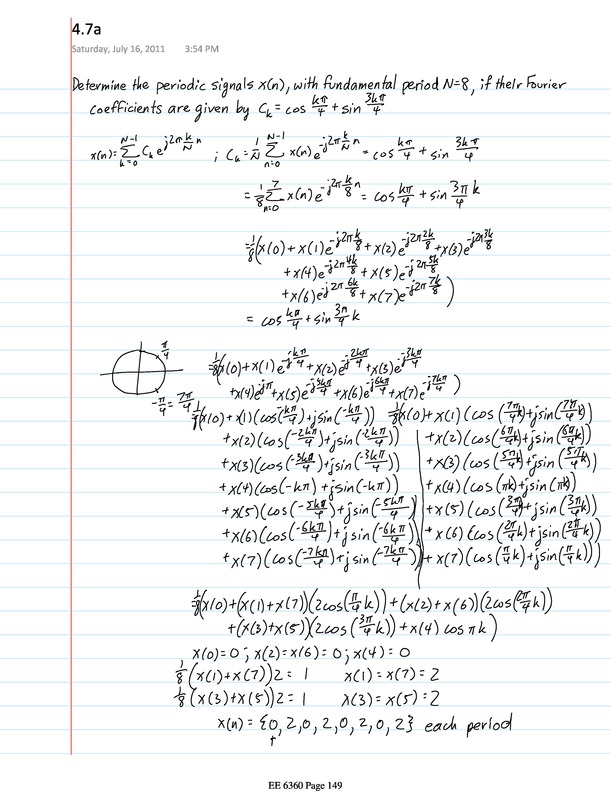 4.7a
Saturday, July 16, 2011 3:54 PM
Determine the periodic signals x(n), with fundamental period N=8, if their Fourier
coefficients are given by Cₖ = cos kπ/4 + sin 3kπ/4
x(n) = Σ_{k=0}^{N-1} Cₖ e^{j2π k/N n} ; Cₖ = 1/N Σ_{n=0}^{N-1} x(n) e^{-j2π k/N n} = cos kπ/4 + sin 3kπ/4
= 1/8 Σ_{n=0}^{7} x(n) e^{-j2π k/8 n} = cos kπ/4 + sin 3π/4 k
= 1/8 (x(0) + x(1) e^{-j2π k/8} + x(2) e^{-j2π 2k/8} + x(3) e^{-j2π 3k/8}
+ x(4) e^{-j2π 4k/8} + x(5) e^{-j2π 5k/8}
+ x(6) e^{-j2π 6k/8} + x(7) e^{-j2π 7k/8} )
= cos kπ/4 + sin 3π/4 k
π/4
-π/4 = 7π/4
1/8 (x(0) + x(1) e^{-j kπ/4} + x(2) e^{-j 2kπ/4} + x(3) e^{-j 3kπ/4}
+ x(4) e^{-jπ} + x(5) e^{-j 5kπ/4} + x(6) e^{-j 6kπ/4} + x(7) e^{-j 7kπ/4} )
1/8 (x(0) + x(1) (cos(-kπ/4) + j sin(-kπ/4)) = 1/8 (x(0) + x(1) (cos(7π/4 k) + j sin(7π/4 k))
+ x(2) (cos(-2kπ/4) + j sin(-2kπ/4)) + x(2) (cos(6π/4 k) + j sin(6π/4 k))
+ x(3) (cos(-3kπ/4) + j sin(-3kπ/4)) + x(3) (cos(5π/4 k) + j sin(5π/4 k))
+ x(4) (cos(-kπ) + j sin(-kπ)) + x(4) (cos(πk) + j sin(πk))
+ x(5) (cos(-5kπ/4) + j sin(-5kπ/4)) + x(5) (cos(3π/4 k) + j sin(3π/4 k))
+ x(6) (cos(-6kπ/4) + j sin(-6kπ/4)) + x(6) (cos(2π/4 k) + j sin(2π/4 k))
+ x(7) (cos(-7kπ/4) + j sin(-7kπ/4)) + x(7) (cos(π/4 k) + j sin(π/4 k))
1/8 (x(0) + (x(1) + x(7)) (2cos(π/4 k)) + (x(2) + x(6)) (2cos(2π/4 k))
+ (x(3) + x(5)) (2cos(3π/4 k)) + x(4) cos πk )
x(0) = 0 ; x(2) = x(6) = 0 ; x(4) = 0
1/8 (x(1) + x(7)) 2 = 1 x(1) = x(7) = 2
1/8 (x(3) + x(5)) 2 = 1 x(3) = x(5) = 2
x(n) = {0, 2, 0, 2, 0, 2, 0, 2} each period
↑
EE 6360 Page 149